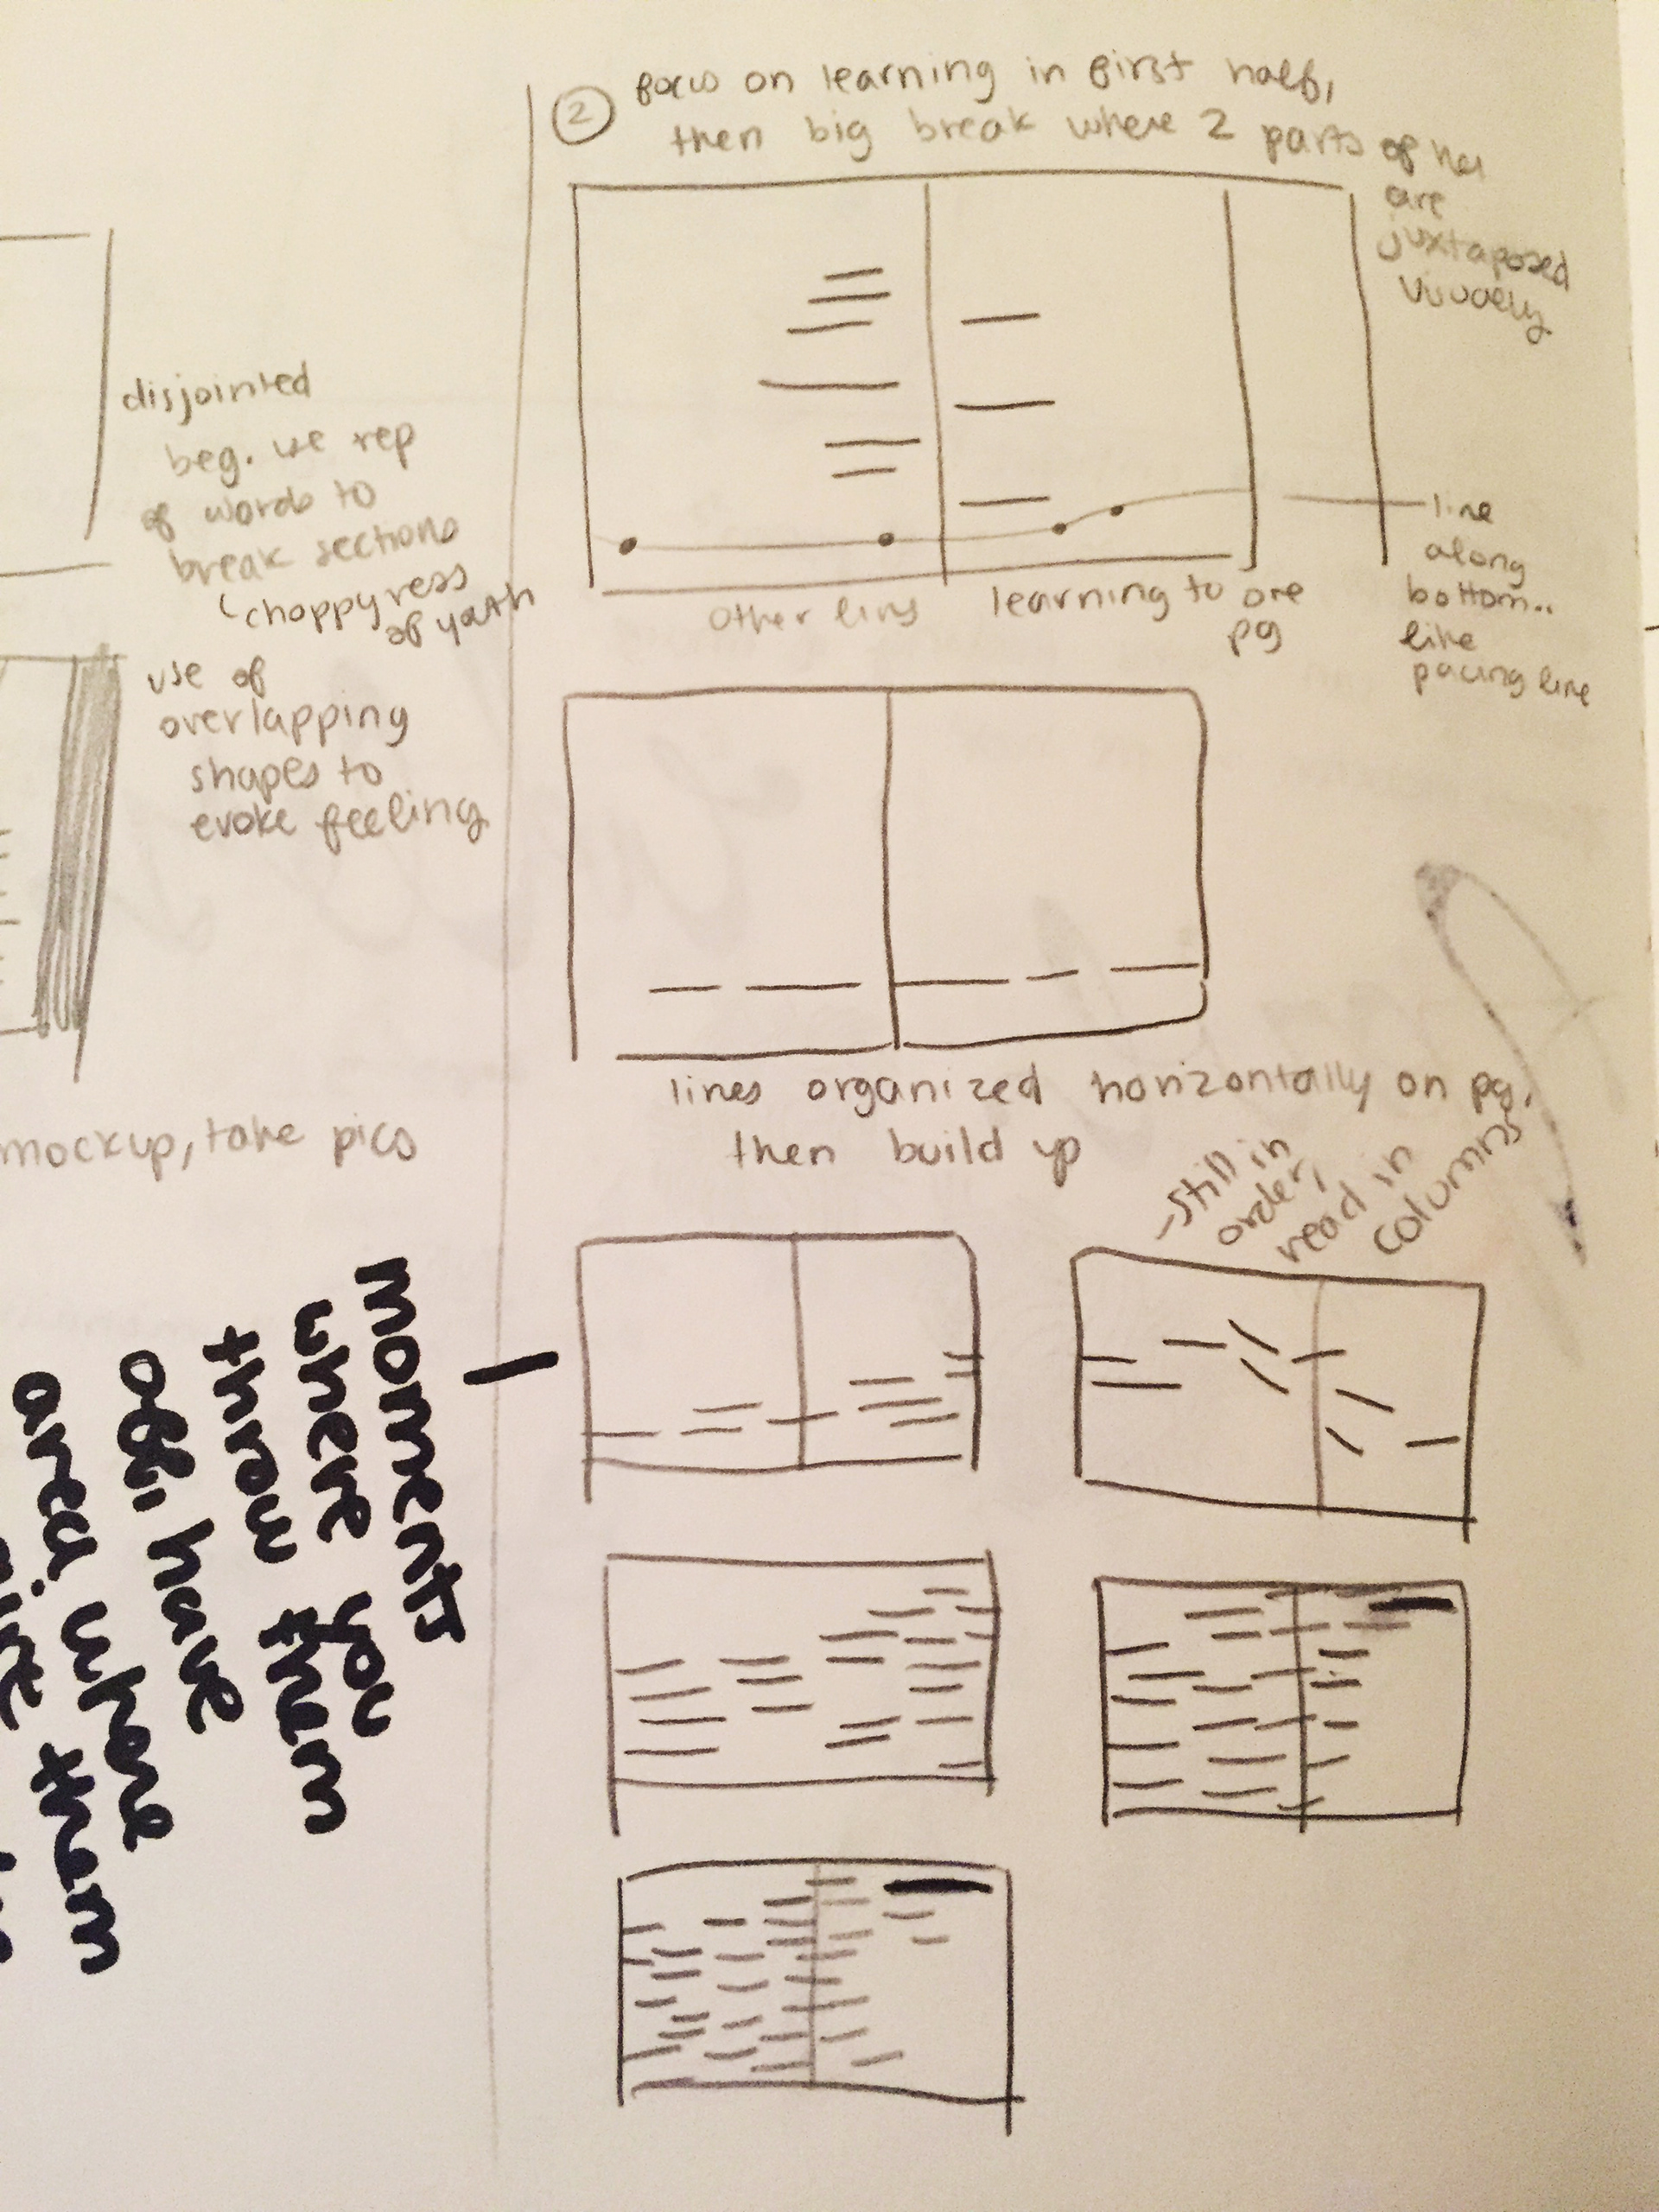 ② focus on learning in first half,
then big break where 2 parts of her
are
juxtaposed
visually.
line
along
bottom..
like
pacing line
other lins
learning to one
pg
lines organized horizontally on pg,
then build up
-still in
order,
read in
columns
disjointed
beg. use rep
of words to
break sections
choppyness
of youth
use of
overlapping
shapes to
evoke feeling
mockup, take pics
moments
where you
throw them
off, have
area where
them